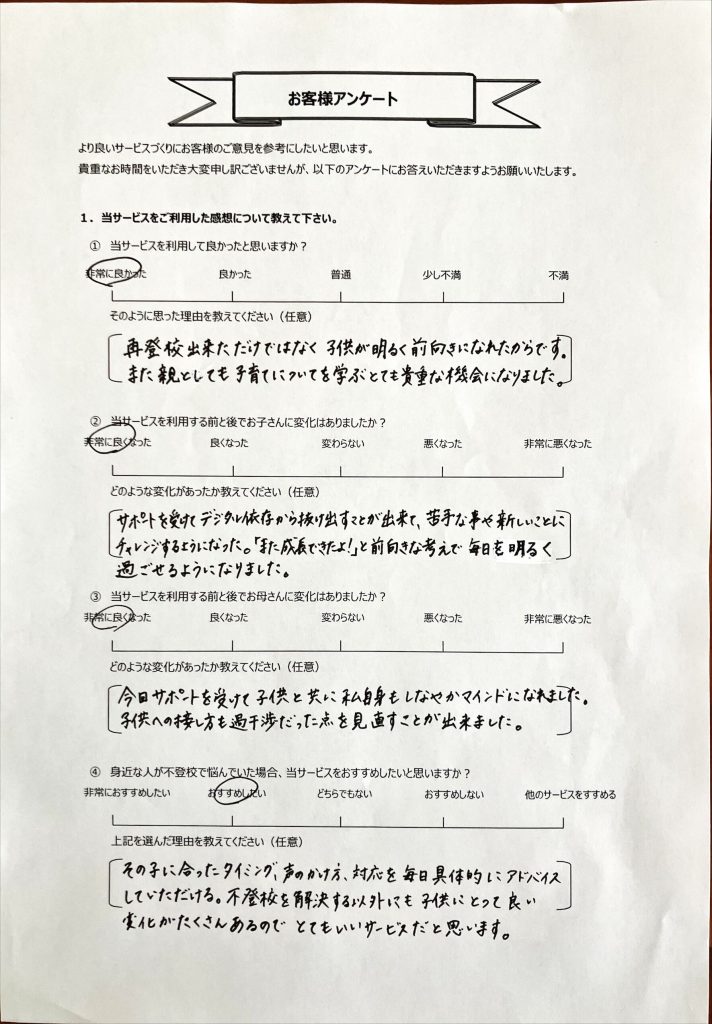 お客様アンケート
より良いサービスづくりにお客様のご意見を参考にしたいと思います。
貴重なお時間をいただき大変申し訳ございませんが、以下のアンケートにお答えいただきますようお願いいたします。
1．当サービスをご利用した感想について教えて下さい。
① 当サービスを利用して良かったと思いますか？
非常に良かった 良かった 普通 少し不満 不満
そのように思った理由を教えてください（任意）
再登校出来ただけではなく 子供が明るく前向きになれたからです。
また親としても子育てについてを学ぶとても貴重な機会になりました。
② 当サービスを利用する前と後でお子さんに変化はありましたか？
非常に良くなった 良くなった 変わらない 悪くなった 非常に悪くなった
どのような変化があったか教えてください（任意）
サポートを受けてデジタル依存から抜け出すことが出来て、苦手な事や新しいことに
チャレンジするようになった。「また成長できたよ!」と前向きな考えで毎日を明るく
過ごせるようになりました。
③ 当サービスを利用する前と後でお母さんに変化はありましたか？
非常に良くなった 良くなった 変わらない 悪くなった 非常に悪くなった
どのような変化があったか教えてください（任意）
今日サポートを受けて子供と共に私自身もしなやかマインドになれました。
子供への接し方も過干渉だった点を見直すことが出来ました。
④ 身近な人が不登校で悩んでいた場合、当サービスをおすすめしたいと思いますか？
非常におすすめしたい おすすめしたい どちらでもない おすすめしない 他のサービスをすすめる
上記を選んだ理由を教えてください（任意）
その子に合ったタイミング、声のかけ方、対応を毎日具体的にアドバイス
していただける。不登校を解決する以外にも子供にとって良い
変化がたくさんあるので とてもいいサービスだと思います。